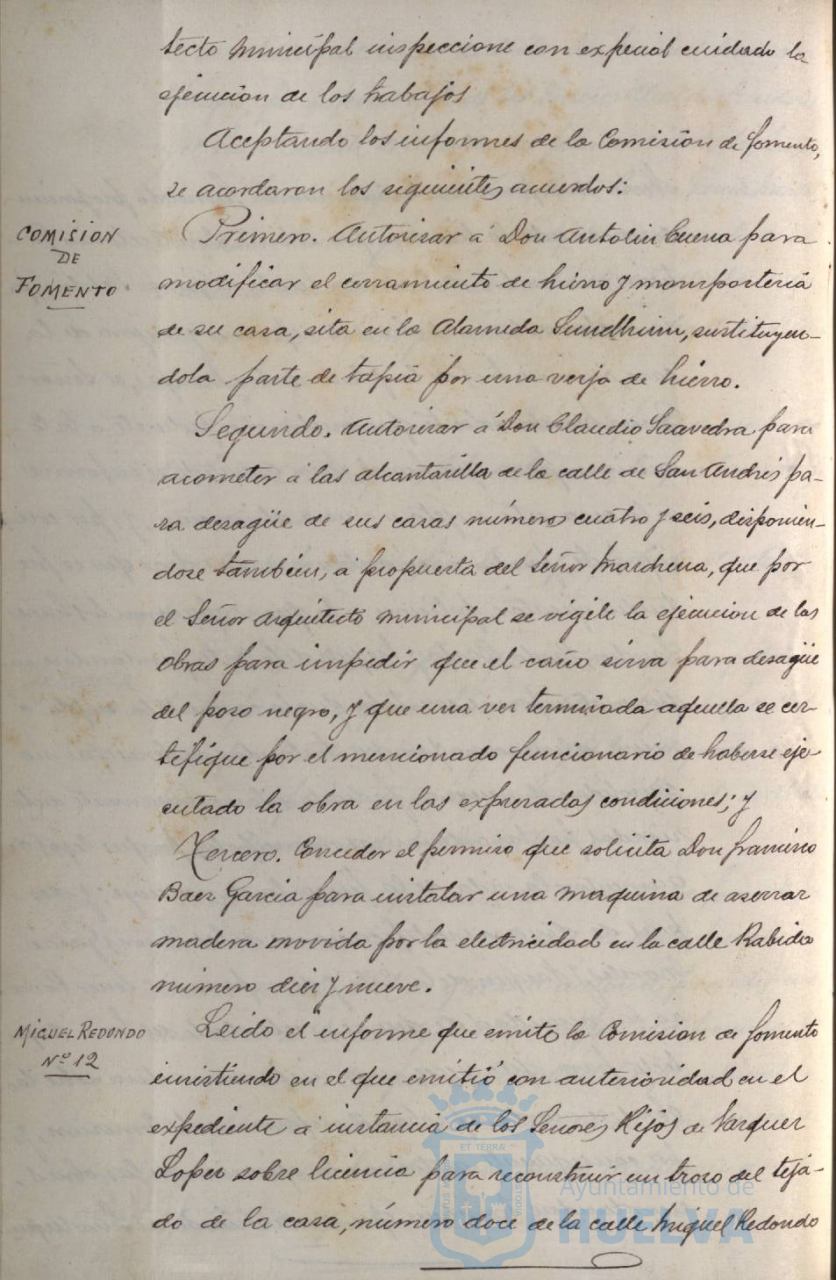 tecto Municipal inspeccione con especial cuidado la
ejecucion de los trabajos
Aceptando los informes de la Comision de fomento,
se acordaron los siguientes acuerdos:
COMISION
DE
FOMENTO
Primero. Autorizar á Don Antolin Cuena para
modificar el cerramiento de hierro y mamposteria
de su casa, sita en la Alameda Sundheim, sustituyen-
dola parte de tapia por una verja de hierro.
Segundo. Autorizar á Don Claudio Saavedra para
acometer á las alcantarilla de la calle de San Andrés pa-
ra desagüe de sus casas números cuatro y seis, disponien-
dose también, á propuesta del Señor Marchena, que por
el Señor Arquitecto municipal se vigile la ejecucion de las
obras para impedir que el caño sirva para desagüe
del poso negro, y que una vez terminada aquella se cer-
tifique por el mencionado funcionario de haberse eje-
cutado la obra en las expresadas condiciones; y
Tercero. Conceder el permiso que solicita Don francisco
Baez Garcia para instalar una maquina de aserrar
madera movida por la electricidad en la calle Rabida
número diez y nueve.
MIGUEL REDONDO
Nº 12
Leido el informe que emite la Comision de fomento
insistiendo en el que emitió con anterioridad en el
expediente á instancia de los Señores Hijos de Vazquez
Lopez sobre licencia para reconstruir un troso del teja-
do de la casa, número doce de la calle Miguel Redondo
ET TERRA
Ayuntamiento de
HUELVA